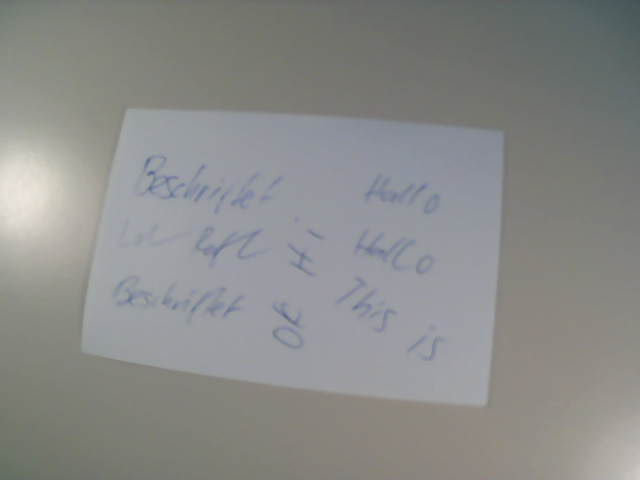 Beschriftet Hallo
Lol Rofl Hi Hallo
Beschriftet Ok This is